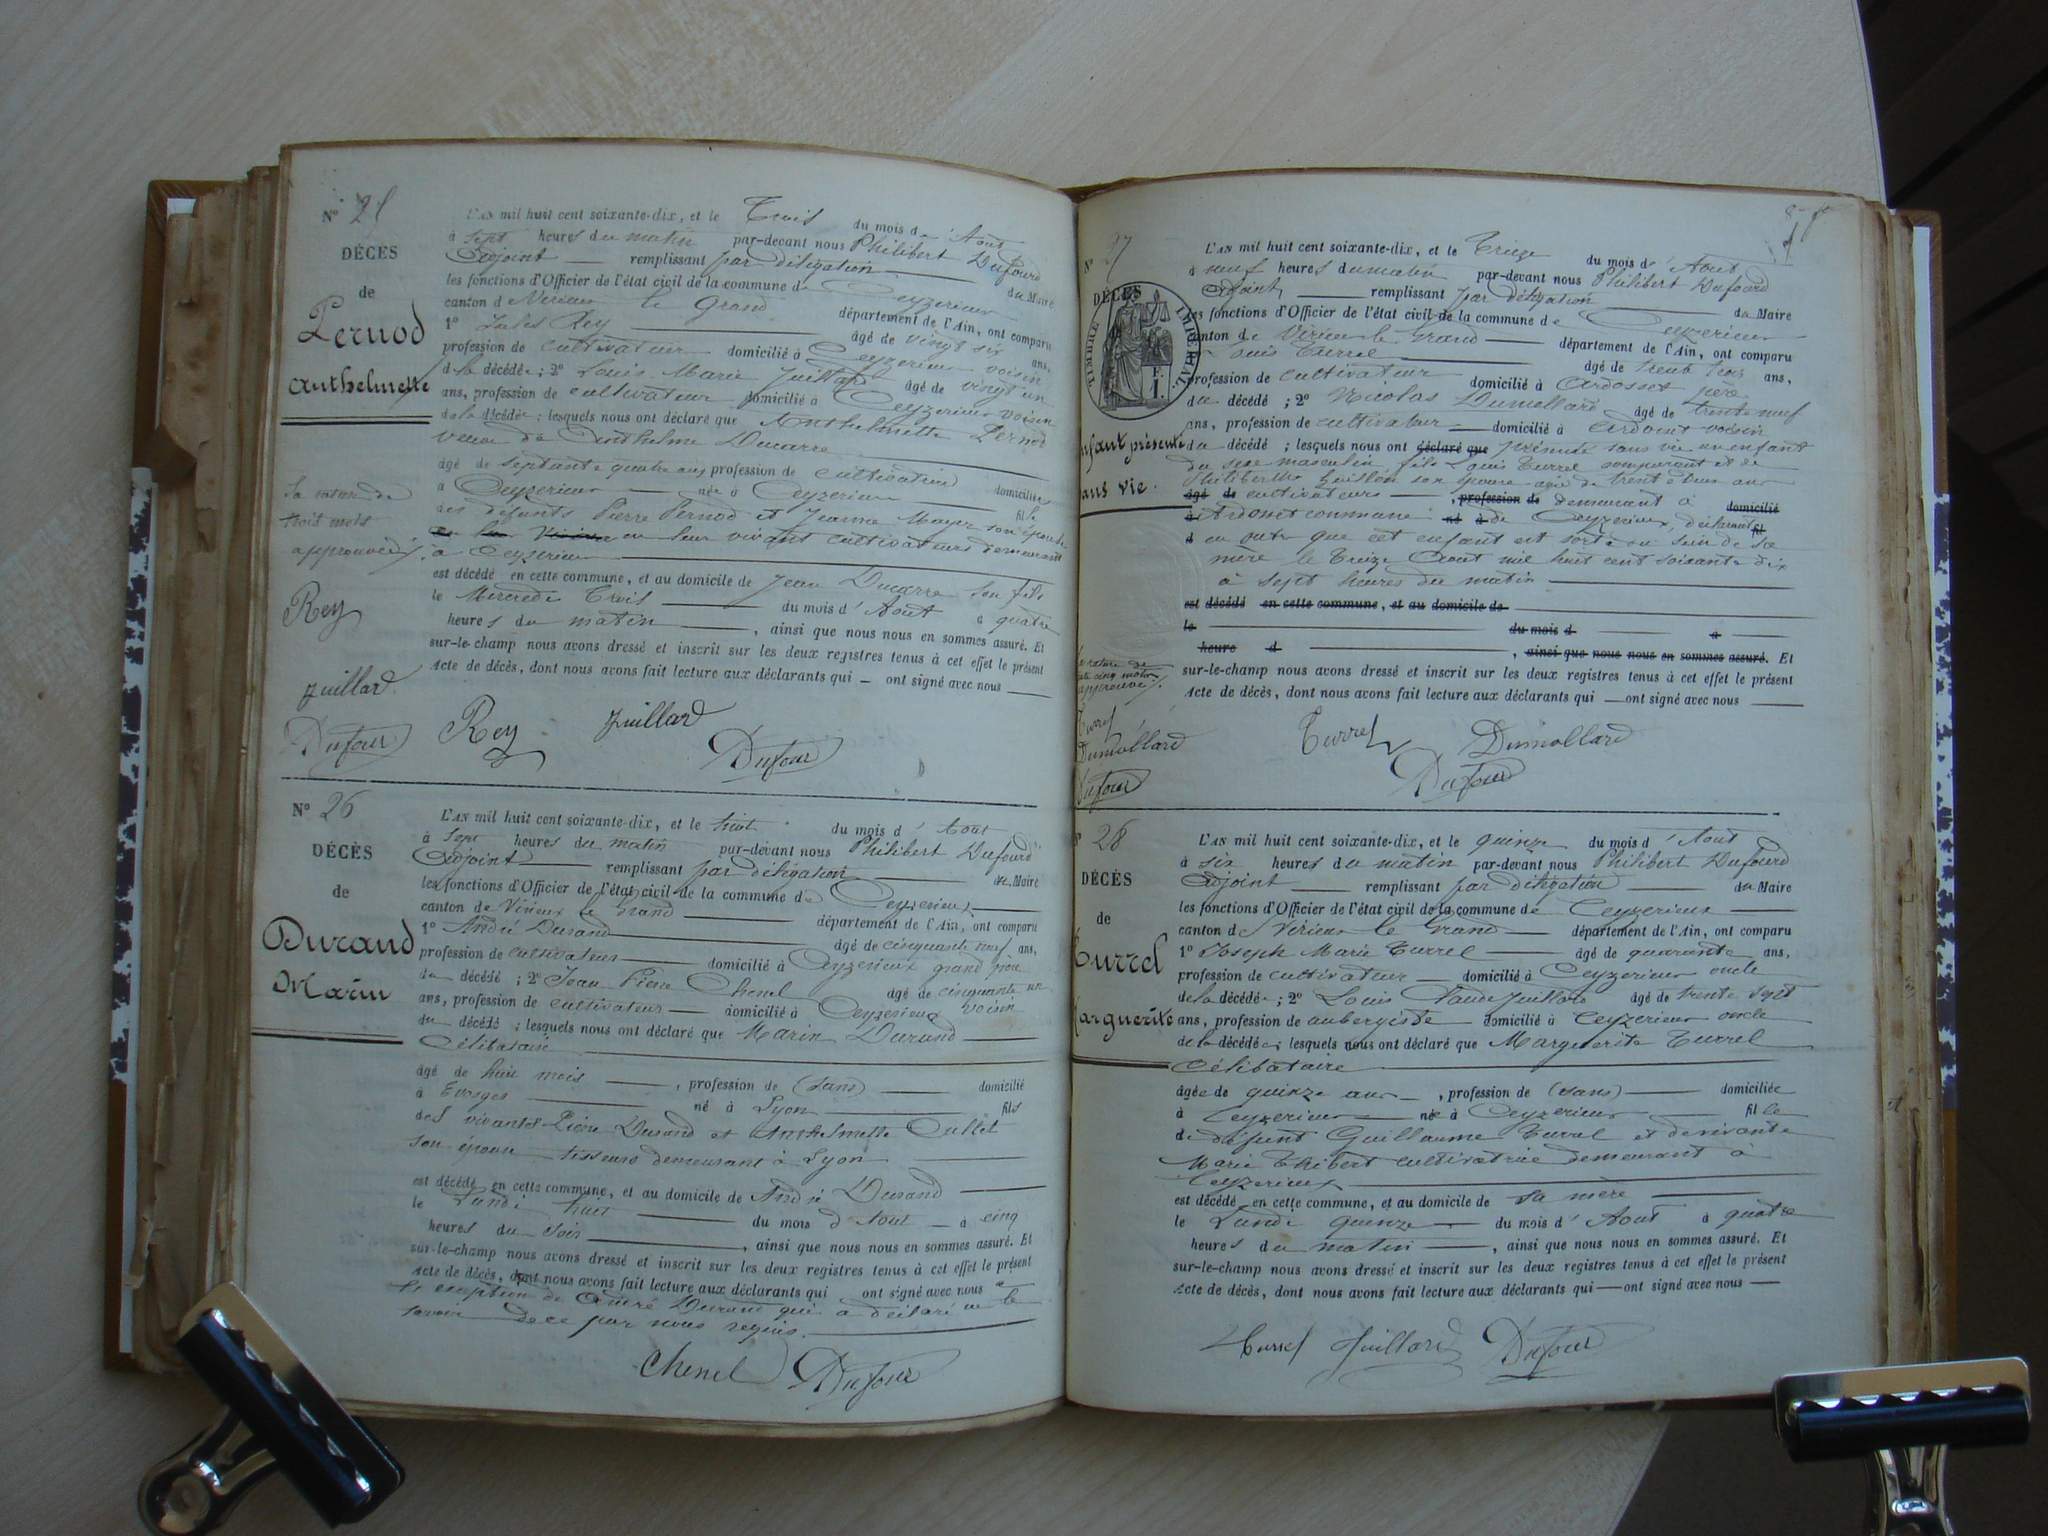 N° 25
DÉCÈS
de
Pernod
Anthelmette
L'AN mil huit cent soixante-dix, et le Trois du mois d' Aout
à sept heures du matin par-devant nous Philibert Dufourd
Adjoint remplissant par déligation du Maire
les fonctions d'Officier de l'état civil de la commune de Ceyzerieux
canton de Virieux le Grand département de l'Ain, ont comparu
1° Jules Rey âgé de vingt six ans,
profession de cultivateur domicilié à Ceyzerieux voisin
de la décédée ; 2° Louis Marie Juillard âgé de vingt un
ans, profession de cultivateur domicilié à Ceyzerieux voisin
de la décédée ; lesquels nous ont déclaré que Anthelmette Pernod
veuve de Anthelme Ducarre
âgé de septante quatre ans profession de domiciliée
à Ceyzerieux née à Ceyzerieux fille
des défunts Pierre Pernod et Jeanne son épouse
en leur vivant cultivateurs demeurant
à Ceyzerieux
est décédé en cette commune, et au domicile de Jean Ducarre son fils
le Mercredi Trois du mois d' Aout à quatre
heures du matin , ainsi que nous nous en sommes assuré. Et
sur-le-champ nous avons dressé et inscrit sur les deux registres tenus à cet effet le présent
Acte de décès, dont nous avons fait lecture aux déclarants qui — ont signé avec nous
La rature de
trois mots
approuvée
Rey
Juillard
Dufour
Rey Juillard
Dufour
N° 26
DÉCÈS
de
Durand
Marin
L'AN mil huit cent soixante-dix, et le huit du mois d' Aout
à sept heures du matin par-devant nous Philibert Dufourd
Adjoint remplissant par déligation du Maire
les fonctions d'Officier de l'état civil de la commune de Ceyzerieux
canton de Virieux le Grand département de l'Ain, ont comparu
1° André Durand âgé de cinquante neuf ans,
profession de cultivateur domicilié à Ceyzerieux grand père
du décédé ; 2° Jean Pierre Chenel âgé de cinquante un
ans, profession de cultivateur domicilié à Ceyzerieux voisin
du décédé ; lesquels nous ont déclaré que Marin Durand
Célibataire
âgé de huit mois , profession de (sans) domicilié
à Evosges né à Lyon fils
des vivants Pierre Durand et Anthelmette Cullet
son épouse tisseurs demeurant à Lyon
est décédé en cette commune, et au domicile de André Durand
le Lundi huit du mois d' Aout à cinq
heures du soir , ainsi que nous nous en sommes assuré. Et
sur-le-champ nous avons dressé et inscrit sur les deux registres tenus à cet effet le présent
Acte de décès, dont nous avons fait lecture aux déclarants qui ont signé avec nous à
l'exeption de André Durand qui a déclaré ne le
savoir de ce par nous requis.
Chenel Dufour
N° 27
DÉCÈS
TIMBRE IMPÉRIAL
1 F.
enfant présenté
sans vie.
L'AN mil huit cent soixante-dix, et le Treize du mois d' Aout
à neuf heures du matin par-devant nous Philibert Dufourd
Adjoint remplissant par déligation du Maire
les fonctions d'Officier de l'état civil de la commune de Ceyzerieux
canton de Virieux le Grand département de l'Ain, ont comparu
Louis Turrel âgé de trente trois ans,
profession de cultivateur domicilié à Ardosset père
du décédé ; 2° Nicolas Dumollard âgé de trente neuf
ans, profession de cultivateur domicilié à Ardosset voisin
du décédé ; lesquels nous ont déclaré que présenté sans vie un enfant
du sexe masculin fils Louis Turrel comparant et de
Philiberthe Guillon son épouse agée de trente ans
âgé de cultivateurs , profession de demeurant à domicilié
à Ardosset commune né à de Ceyzerieux, déclarant fil
d en outre que cet enfant est sorti du sein de sa
mère le Treize Aout mil huit cent soixante dix
à sept heures du matin
est décédé en cette commune, et au domicile de
le du mois d à
heure d , ainsi que nous nous en sommes assuré. Et
sur-le-champ nous avons dressé et inscrit sur les deux registres tenus à cet effet le présent
Acte de décès, dont nous avons fait lecture aux déclarants qui — ont signé avec nous
rature de
cinq mots
approuvée
Turrel
Dumollard
Dufour
Turrel Dumollard
Dufour
N° 28
DÉCÈS
de
Turrel
Marguerite
L'AN mil huit cent soixante-dix, et le quinze du mois d' Aout
à six heures du matin par-devant nous Philibert Dufourd
Adjoint remplissant par déligation du Maire
les fonctions d'Officier de l'état civil de la commune de Ceyzerieux
canton de Virieux le Grand département de l'Ain, ont comparu
1° Joseph Marie Turrel âgé de quarante ans,
profession de cultivateur domicilié à Ceyzerieux oncle
de la décédée ; 2° Louis Claude Juillard âgé de trente sept
ans, profession de aubergiste domicilié à Ceyzerieux oncle
de la décédée ; lesquels nous ont déclaré que Marguerite Turrel
Célibataire
âgée de quinze ans , profession de (sans) domiciliée
à Ceyzerieux née à Ceyzerieux fille
de défunt Guillaume Turrel et de vivante
Marie Thibert cultivatrice demeurant à
Ceyzerieux
est décédé en cette commune, et au domicile de sa mère
le Lundi quinze du mois d' Aout à quatre
heures du matin , ainsi que nous nous en sommes assuré. Et
sur-le-champ nous avons dressé et inscrit sur les deux registres tenus à cet effet le présent
Acte de décès, dont nous avons fait lecture aux déclarants qui — ont signé avec nous
Turrel Juillard Dufour